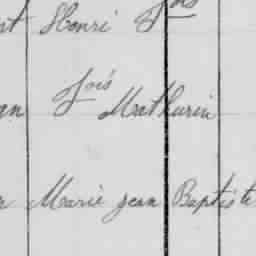 nt Henri Fois
an Fois Mathurin
r Marie jean Baptiste